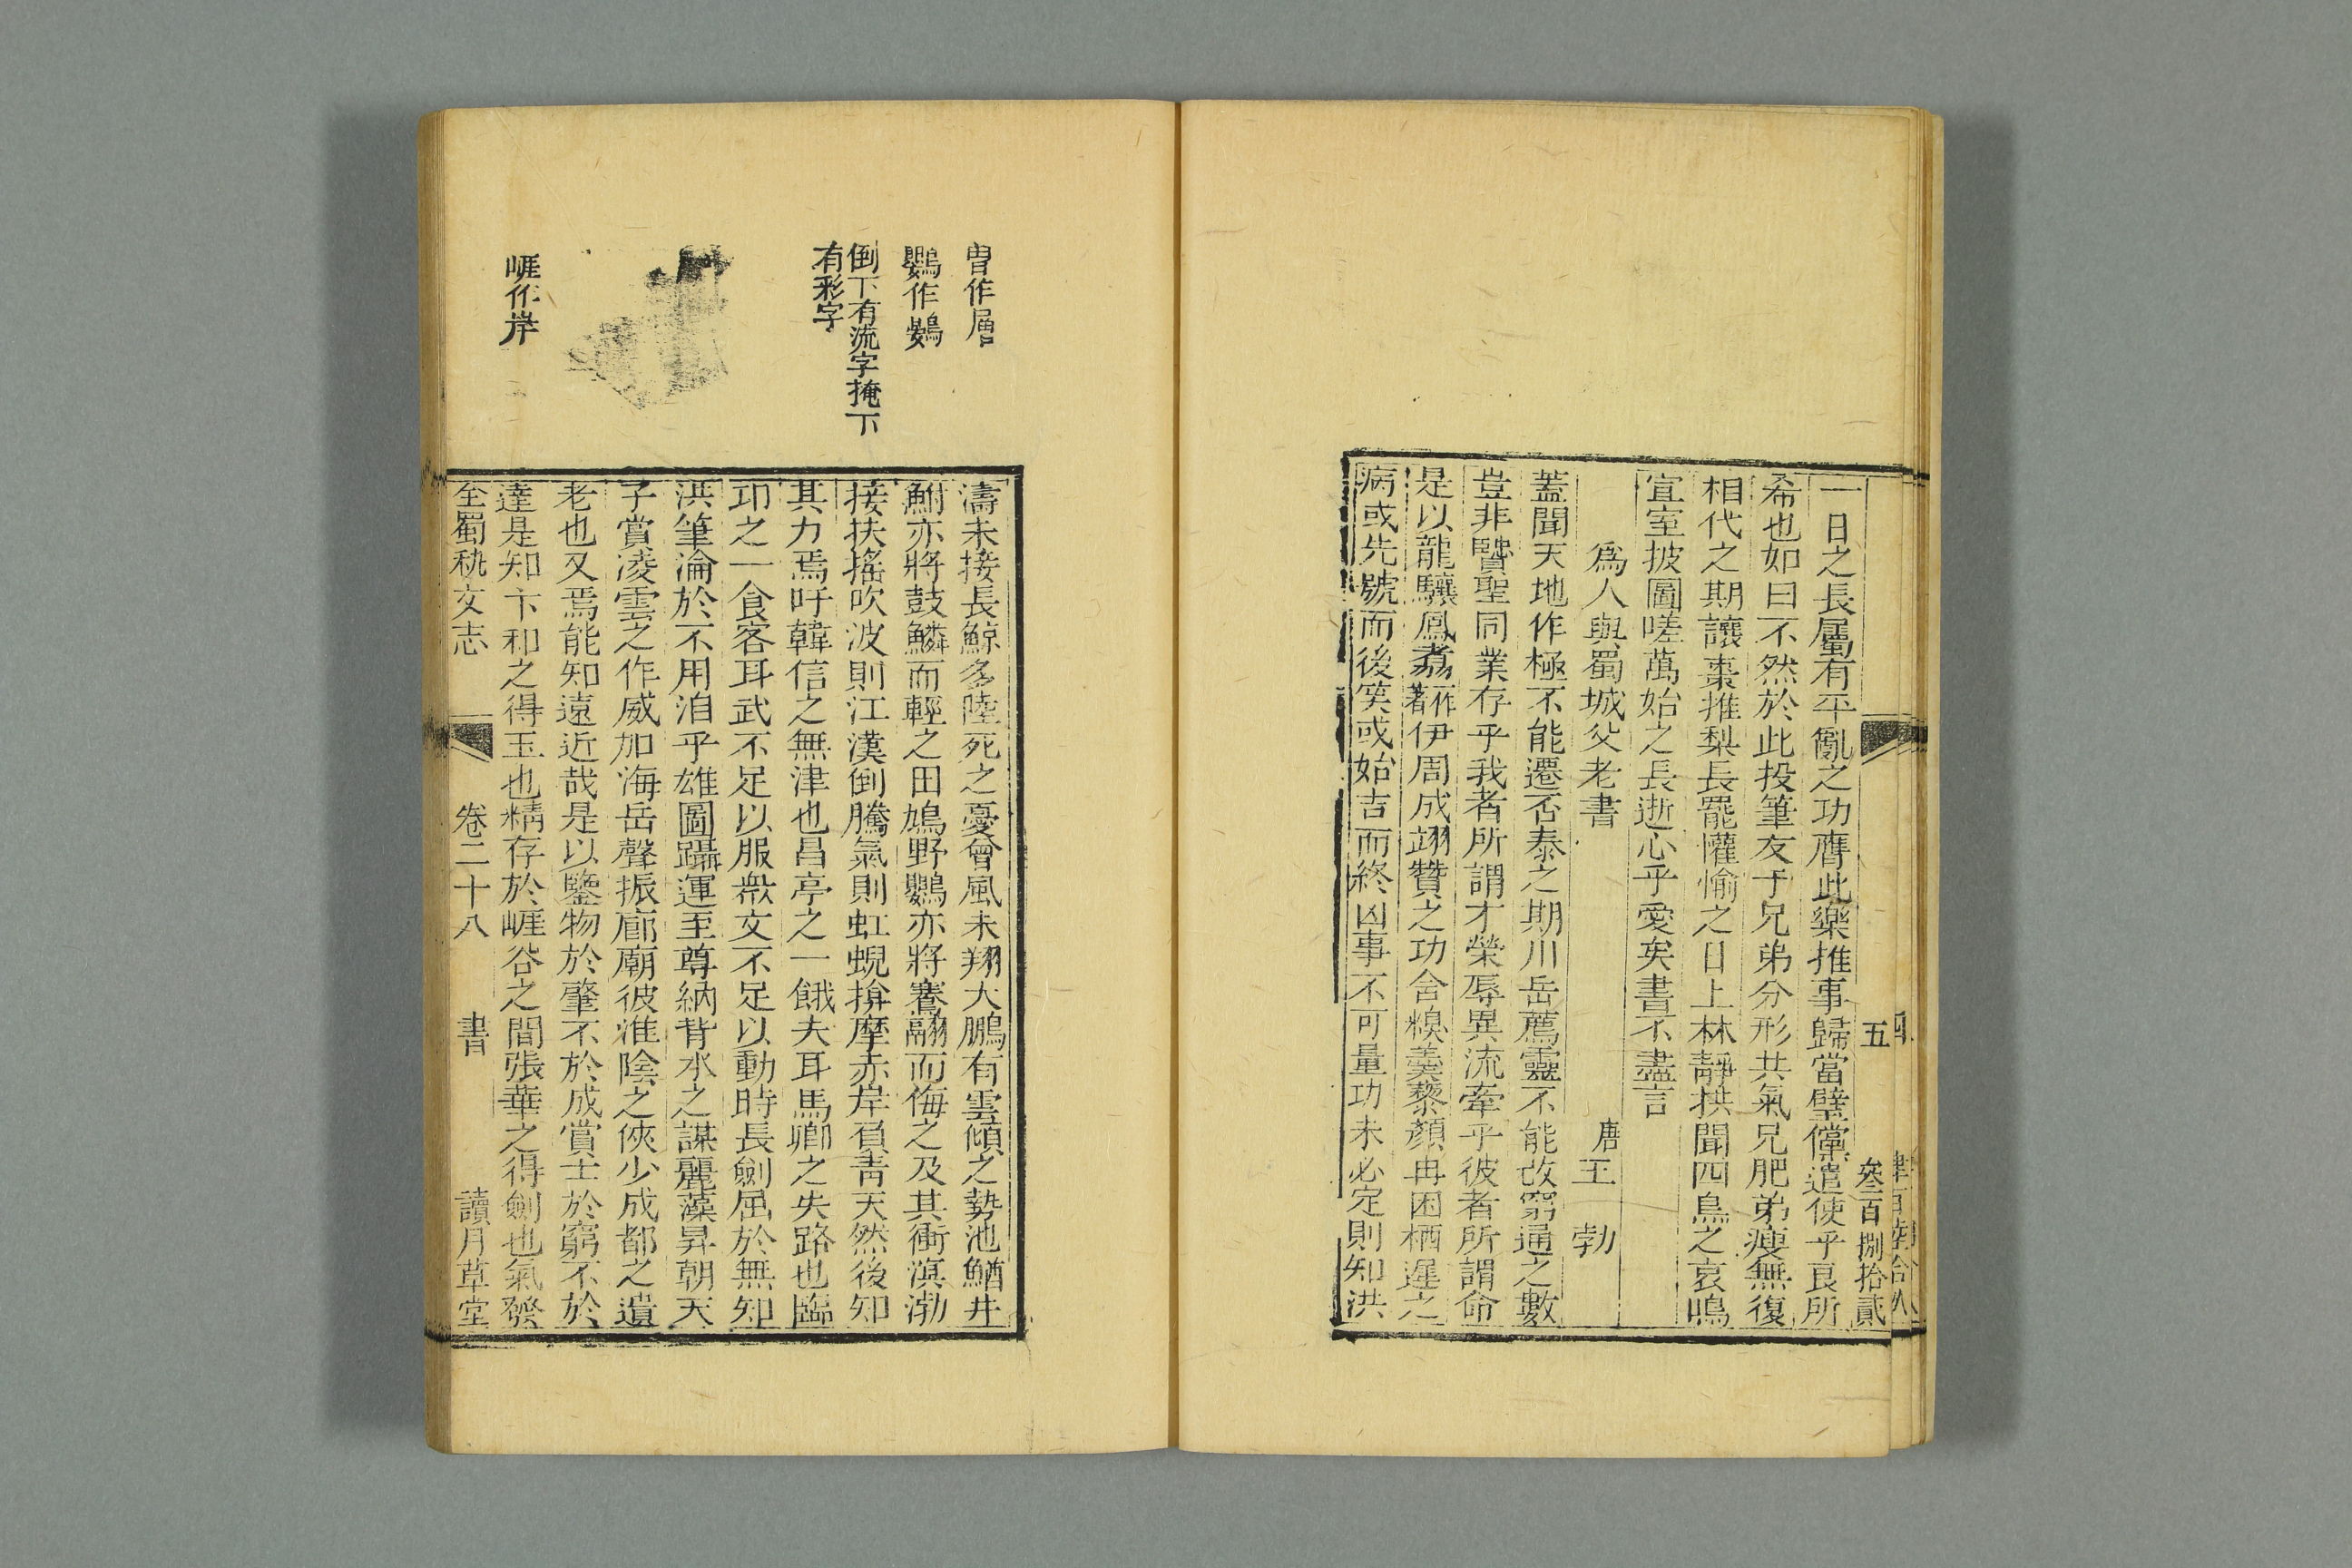 五
叄百捌拾貳
一日之長屬有平亂之功膺此樂推事歸當璧儻遣使乎良所
希也如曰不然於此投筆友于兄弟分形共氣兄肥弟瘦無復
相代之期讓棗推梨長罷懽愉之日上林靜拱聞四鳥之哀鳴
宣室披圖嗟萬始之長逝心乎愛矣書不盡言
爲人與蜀城父老書
唐王勃
蓋聞天地作極不能遷否泰之期川岳薦靈不能改窮通之數
豈非賢聖同業存乎我者所謂才榮辱異流牽乎彼者所謂命
是以龍驤鳳翥一作著伊周成翊贊之功舍糗羹藜顏冉困栖遲之
病或先號而後笑或始吉而終凶事不可量功未必定則知洪
濤未接長鯨多陸死之憂會風未翔大鵬有雲傾之勢池鰌井
鮒亦將鼓鱗而輕之田鳩野鸚亦將騫翮而侮之及其衝溟渤
接扶搖吹波則江漢倒騰氣則虹蜺揜摩赤岸負靑天然後知
其力焉吁韓信之無津也昌亭之一餓夫耳馬卿之失路也臨
邛之一食客耳武不足以服衆文不足以動時長劍屈於無知
洪筆淪於不用洎乎雄圖躡運至尊納背水之謀麗藻昇朝天
子賞凌雲之作威加海岳聲振廊廟彼淮陰之俠少成都之遺
老也又焉能知遠近哉是以鑒物於肇不於成賞士於窮不於
達是知卞和之得玉也精存於崕谷之間張華之得劍也氣發
全蜀秇文志
卷二十八
書
讀月草堂
曾作層
鸚作鷃
倒下有流字掩下
有彩字
崕作岸